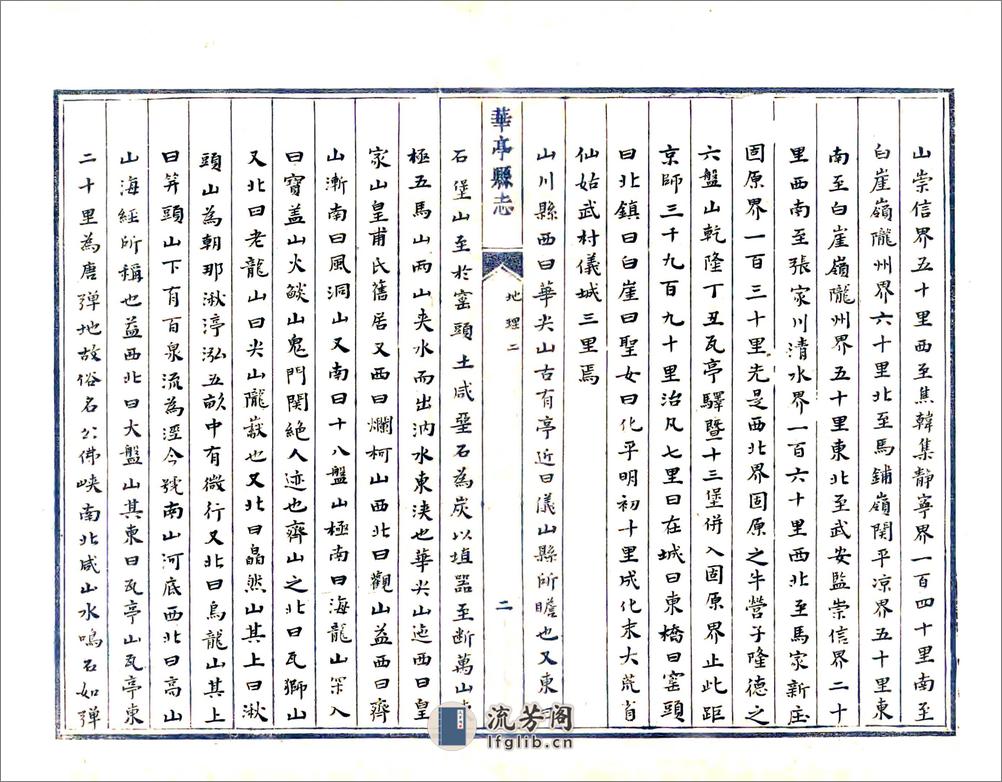 山崇信界五十里西至焦韓集靜寧界一百四十里南至
白崖嶺隴州界六十里北至馬鋪嶺関平凉界五十里東
南至白崖嶺隴州界五十里東北至武安監崇信界二十
里西南至張家川清水界一百六十里西北至馬家新庄
固原界一百三十里先是西北界固原之牛營子隆德之
六盤山乾隆丁丑瓦亭驛暨十三堡併入固原界止此距
京師三千九百九十里治凡七里曰在城曰東橋曰窑頭
曰北鎮曰白崖曰聖女曰化平明初十里成化末大荒省
仙姑武村儀城三里焉
山川縣西曰華尖山古有亭近曰儀山縣所瞻也又東曰
華亭縣志
地理二
二
石堡山至於窑頭土咸堊石為炭以埴噐至断萬山
極五馬山两山夹水而出汭水東浃也華尖山迤西曰皇
家山皇甫氏舊居又西曰爛柯山西北曰觀山益西曰齊
山漸南曰風洞山又南曰十八盤山極南曰海龍山罙入
曰寶盖山火燄山鬼門関絶人迹也齊山之北曰瓦獅山
又北曰老龍山曰尖山隴嶽也又北曰晶然山其上曰湫
頭山為朝那湫渟泓五畝中有微行又北曰烏龍山其上
曰笄頭山下有百泉流為涇今號南山河底西北曰高山
山海經所稱也益西北曰大盤山其東曰瓦亭山瓦亭東
二十里為唐弹地故俗名公佛峽南北咸山水鳴石如弹
流芳阁
lfglib.cn